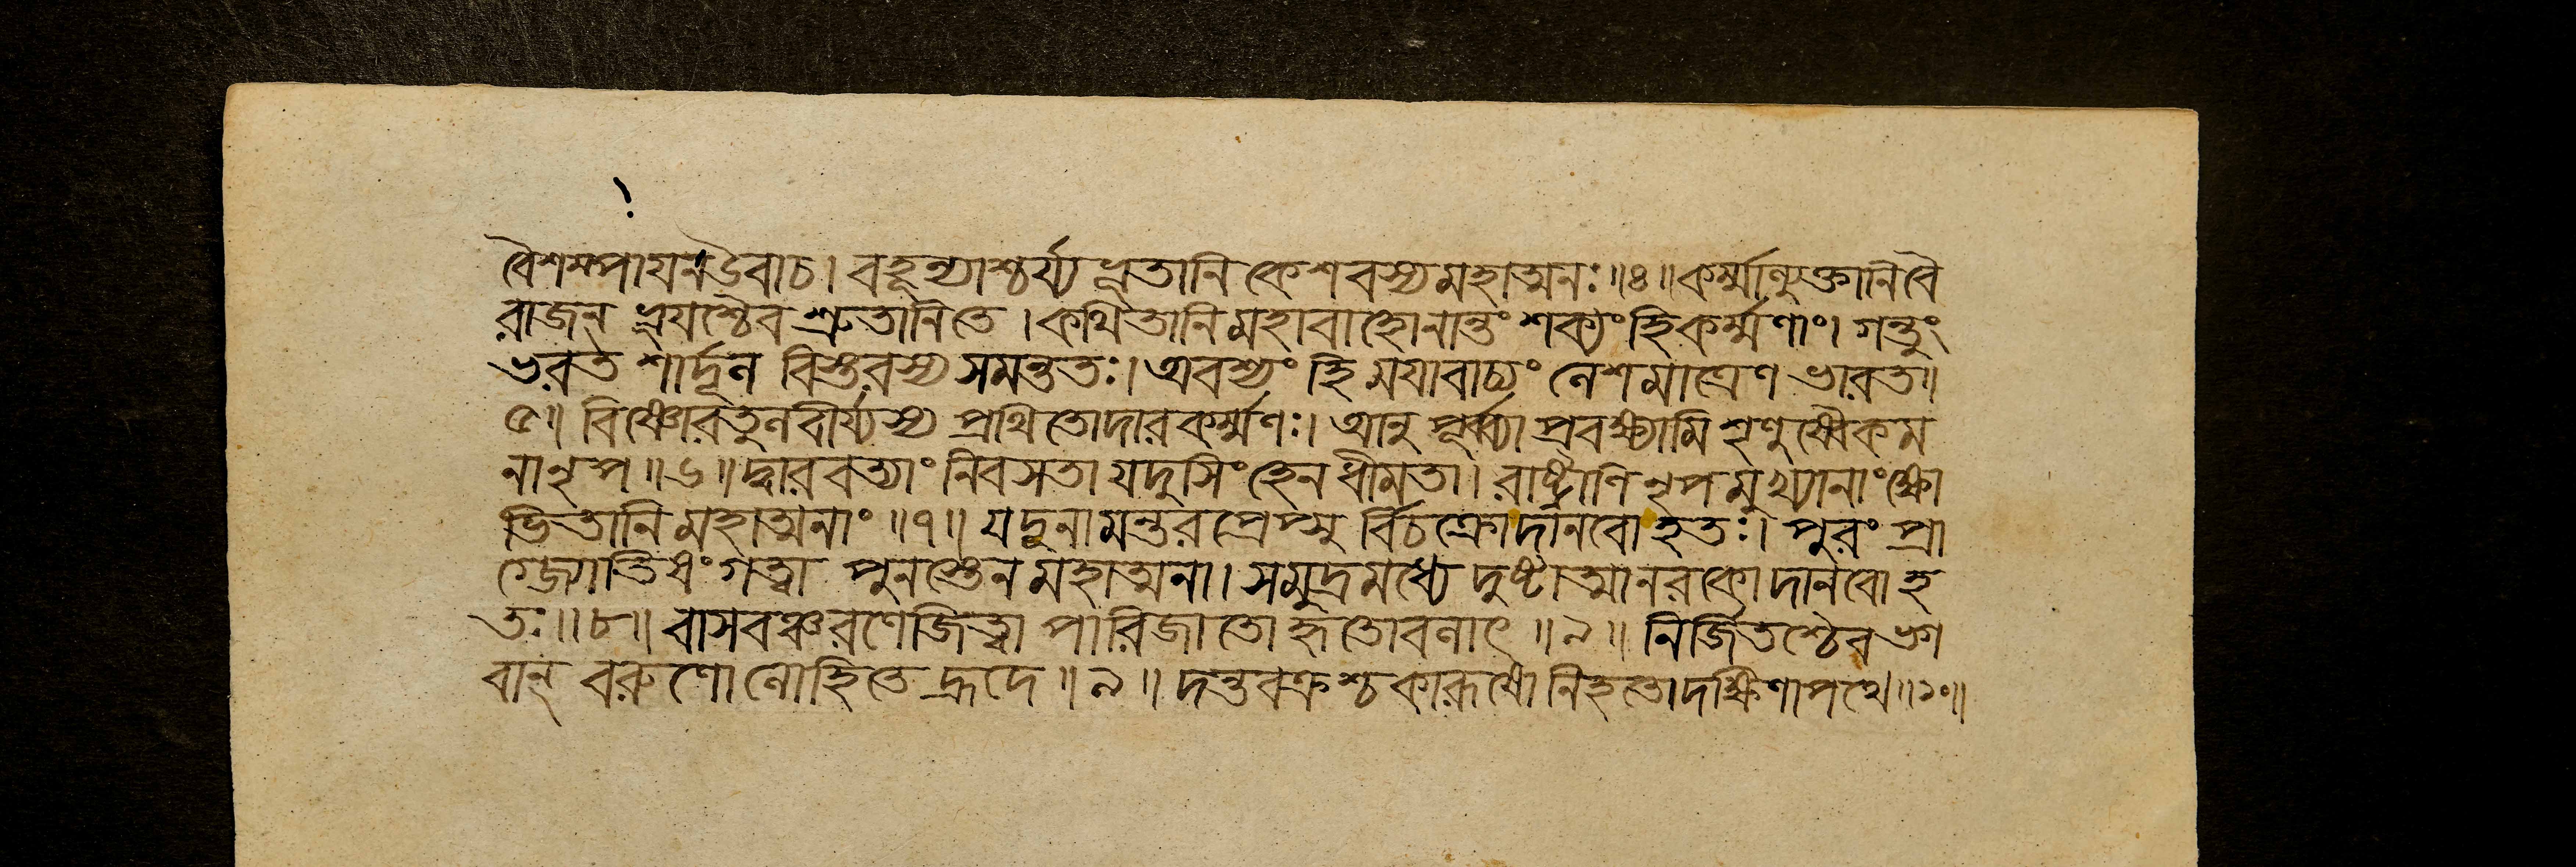 বৈশম্পায়ন উবাচ। বহূন্যাশ্চর্য্য ভূতানি কেশবস্য মহাত্মনঃ॥৪॥ কর্ম্মাণ্যুক্তানি বৈ
রাজন্ ভূয়শ্চৈব শ্রুতানি তে। কথিতানি মহাবাহো নান্তং শক্যং হি কর্ম্মণাং। গন্তুং
ভরত শার্দূল বিস্তরস্য সমন্ততঃ। অবশ্যং হি ময়া বাচ্যং লেশমাত্রেণ ভারত॥
৫॥ বিষ্ণোরতুলবীর্য্যস্য প্রথিতোদার কর্ম্মণঃ। আনুপূর্ব্ব্যা প্রবক্ষ্যামি শৃণুষ্বৈকম
না নৃপ॥৬॥ দ্বারবত্যাং নিবসতা যদুসিংহেন ধীমতা। রাষ্ট্রাণি নৃপমুখ্যানাং ক্ষো
ভিতানি মহাত্মনাং॥৭॥ যদুনামন্তরপ্রেপ্সু র্বিচক্রো দানবো হতঃ। পুরং প্রা
গ্জ্যোতিষং গত্বা পুনস্তেন মহাত্মনা। সমুদ্রমধ্যে দুষ্টাত্মা নরকো দানবো হ
তঃ॥৮॥ বাসবঞ্চ রণে জিত্বা পারিজাতো হৃতো বলাৎ॥৯॥ নির্জিতশ্চৈব ভগ
বান্ বরুণো লোহিতে হ্রদে॥৯॥ দন্তবক্রশ্চ কারূষো নিহতো দক্ষিণাপথে॥১০॥